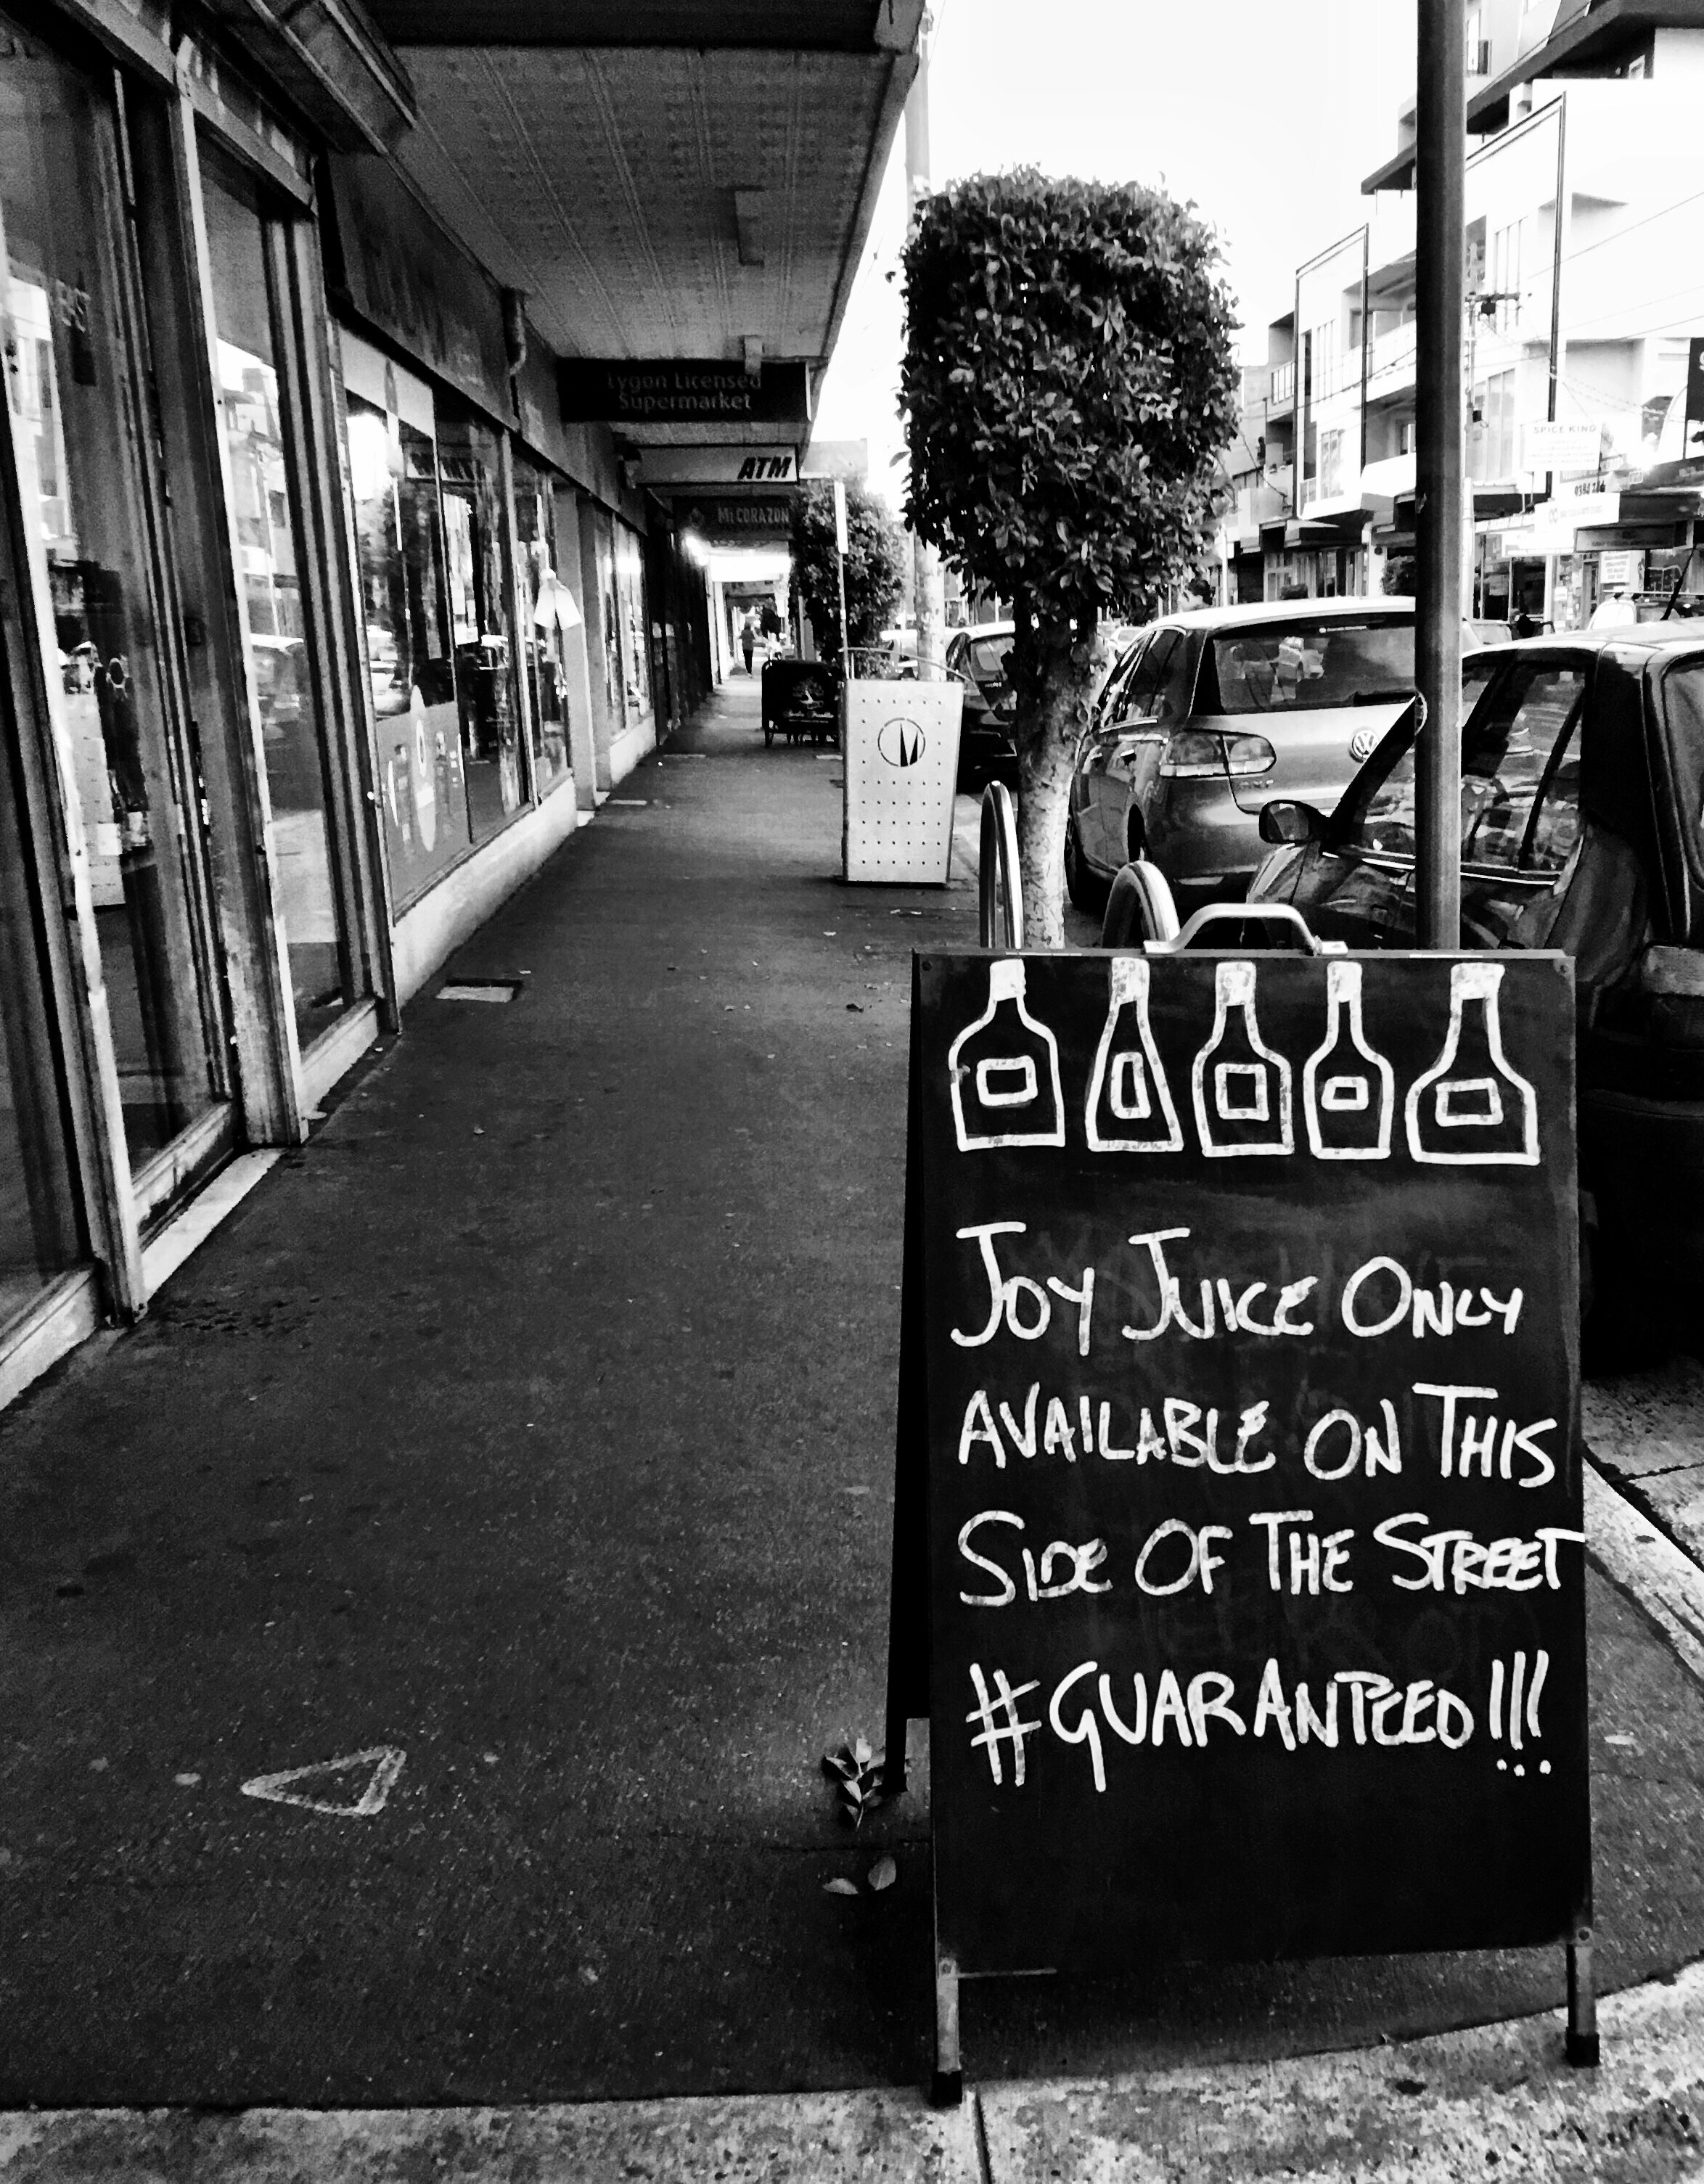 Lygon Licensed
Supermarket
ATM
MI CORAZON
SPICE KING
JOY JUICE ONLY
AVAILABLE ON THIS
SIDE OF THE STREET
#GUARANTEED!!!